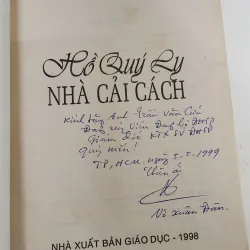 Hồ Quý Ly
NHÀ CẢI CÁCH
Kính tặng Anh Trần Văn
Đảng ủy viên Đảng bộ ĐHSP
Giám đốc KTX SV ĐHSP
quý mến!
TP, HCM. ngày 5-5-1999
Thân ái
Võ Xuân Đàn.
NHÀ XUẤT BẢN GIÁO DỤC - 1998